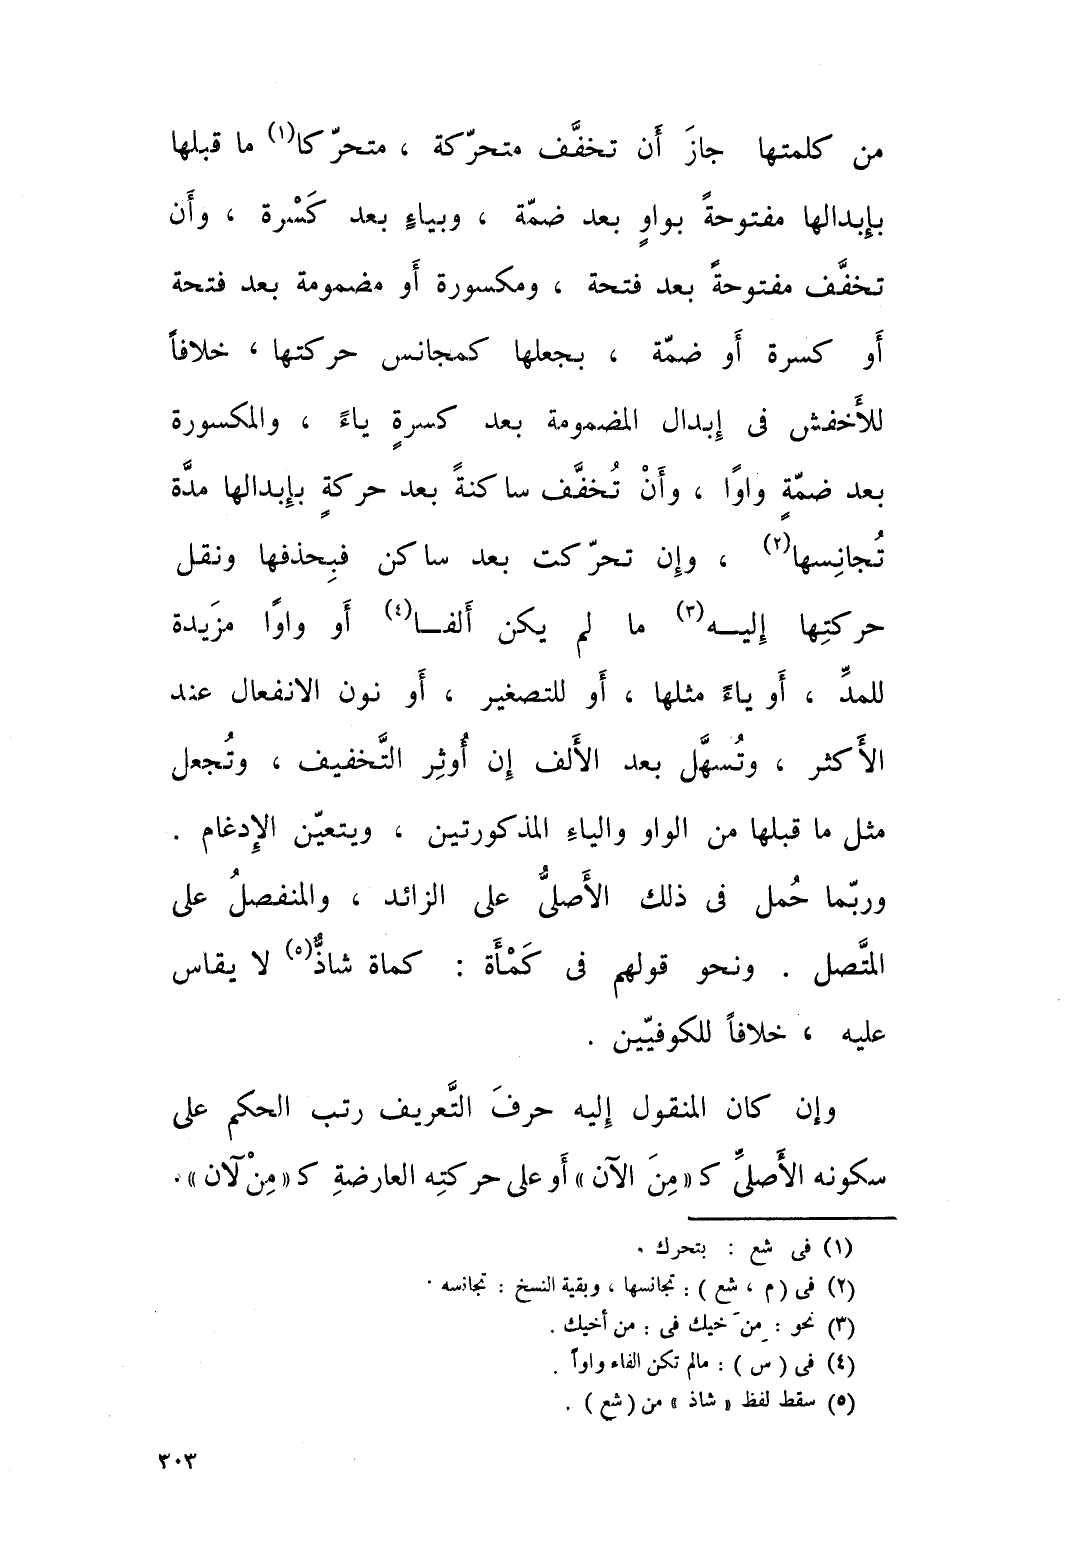 من كلمتها جازَ أَن تخفَّف متحرّكة ، متحرّكا(١) ما قبلها
بإِبدالها مفتوحةً بواوٍ بعد ضمّة ، وبياءٍ بعد كَسْرة ، وأَن
تخفَّف مفتوحةً بعد فتحة ، ومكسورة أَو مضمومة بعد فتحة
أَو كسرة أَو ضمّة ، بجعلها كمجانس حركتها ، خلافاً
للأَخفش فى إِبدال المضمومة بعد كسرةٍ ياءً ، والمكسورة
بعد ضمّةٍ واوًا ، وأَنْ تُخفَّف ساكنةً بعد حركةٍ بإِبدالها مدَّة
تُجانِسها(٢) ، وإِن تحرّكت بعد ساكن فبِحذفها ونقل
حركتِها إِليـــه(٣) ما لم يكن أَلفــا(٤) أَو واوًا مزَيدة
للمدِّ ، أَو ياءً مثلها ، أَو للتصغير ، أَو نون الانفعال عند
الأَكثر ، وتُسهَّل بعد الأَلف إِن أُوثِر التَّخفيف ، وتُجعل
مثل ما قبلها من الواو والياءِ المذكورتين ، ويتعيّن الإِدغام .
وربّما حُمل فى ذلك الأَصلىُّ على الزائد ، والمنفصلُ على
المتَّصل . ونحو قولهم فى كَمْأَة : كماة شاذٌّ(٥) لا يقاس
عليه ، خلافاً للكوفيّين .
وإن كان المنقول إليه حرفَ التَّعريف رتب الحكم على
سكونه الأَصلىِّ كـ «مِنَ الآن» أَو على حركتِه العارضةِ كـ «مِنْ لَان» .
(١) فى شع : بتحرك .
(٢) فى ( م ، شع ) : تجانسها ، وبقية النسخ : تجانسه .
(٣) نحو : مِنَ خيك فى : من أخيك .
(٤) فى ( س ) : مالم تكن الفاء واواً .
(٥) سقط لفظ « شاذ » من ( شع ) .
٣٠٣